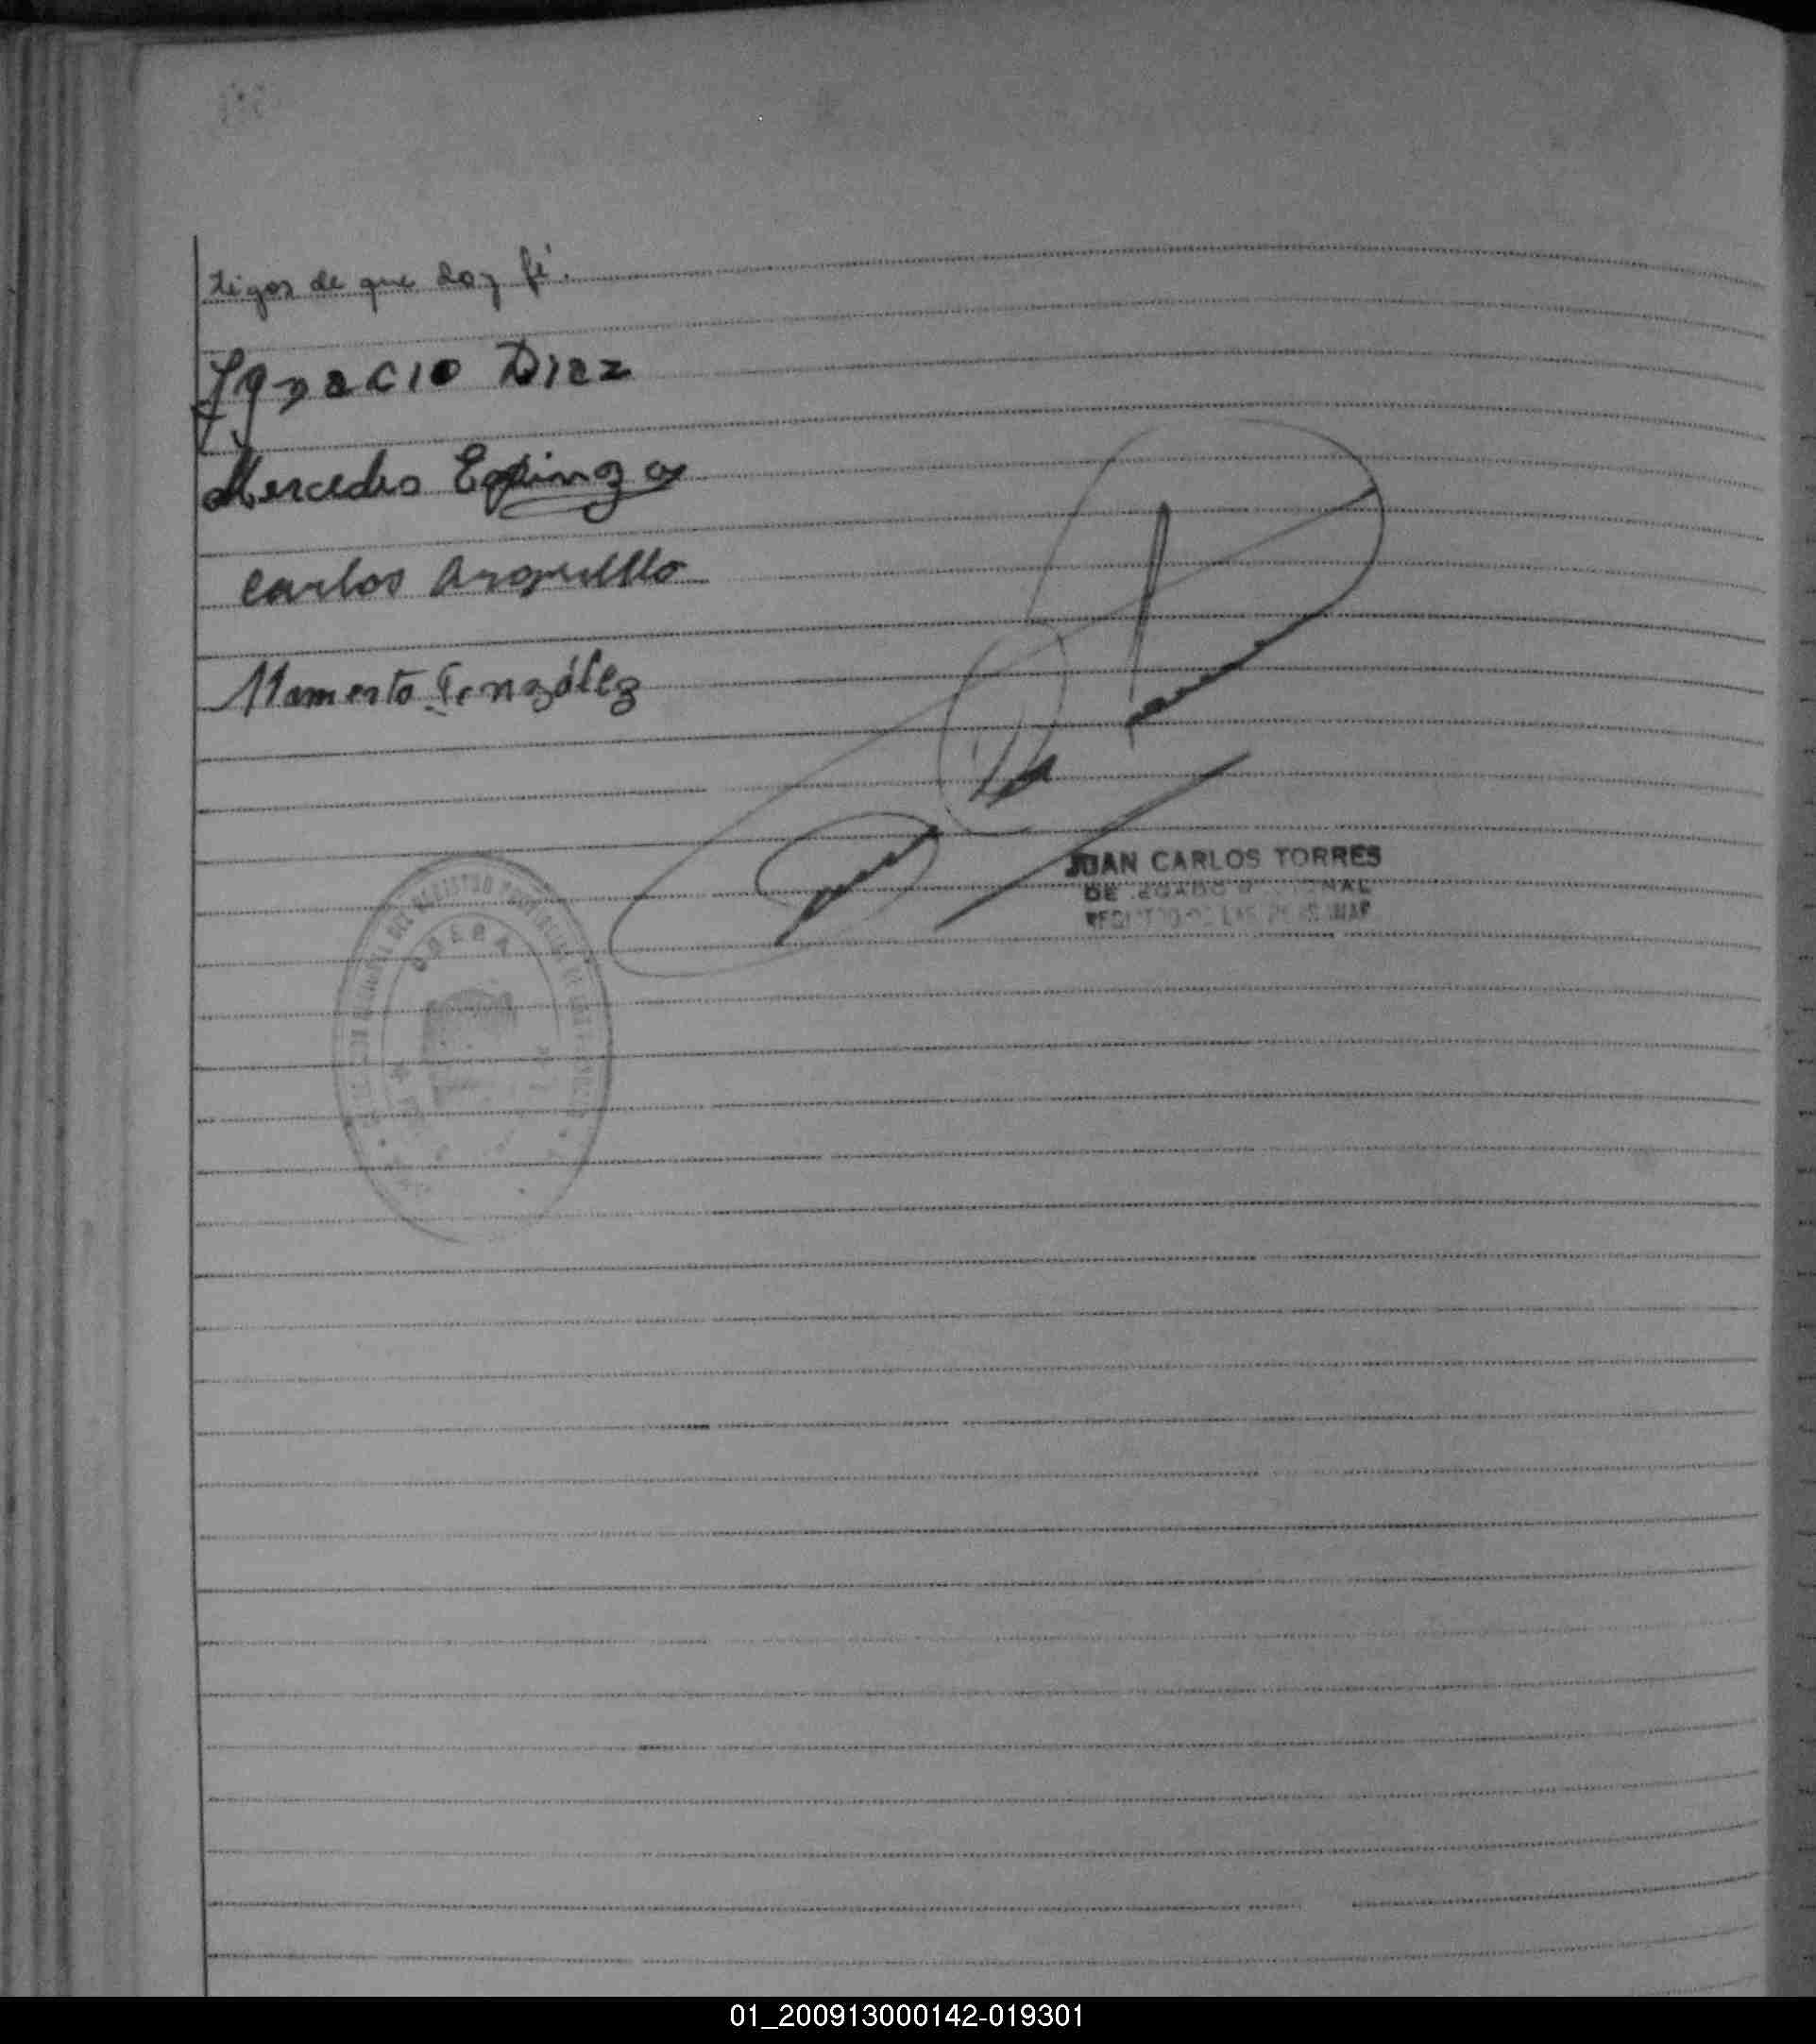 tigos de que doy fé.
Ignacio Diez
Mercedes Espinoza
Carlos Argüello
Mamerto González
JUAN CARLOS TORRES
DELEGADO REGIONAL
REGISTRO DE LAS PERSONAS
OBERA
01_200913000142-019301